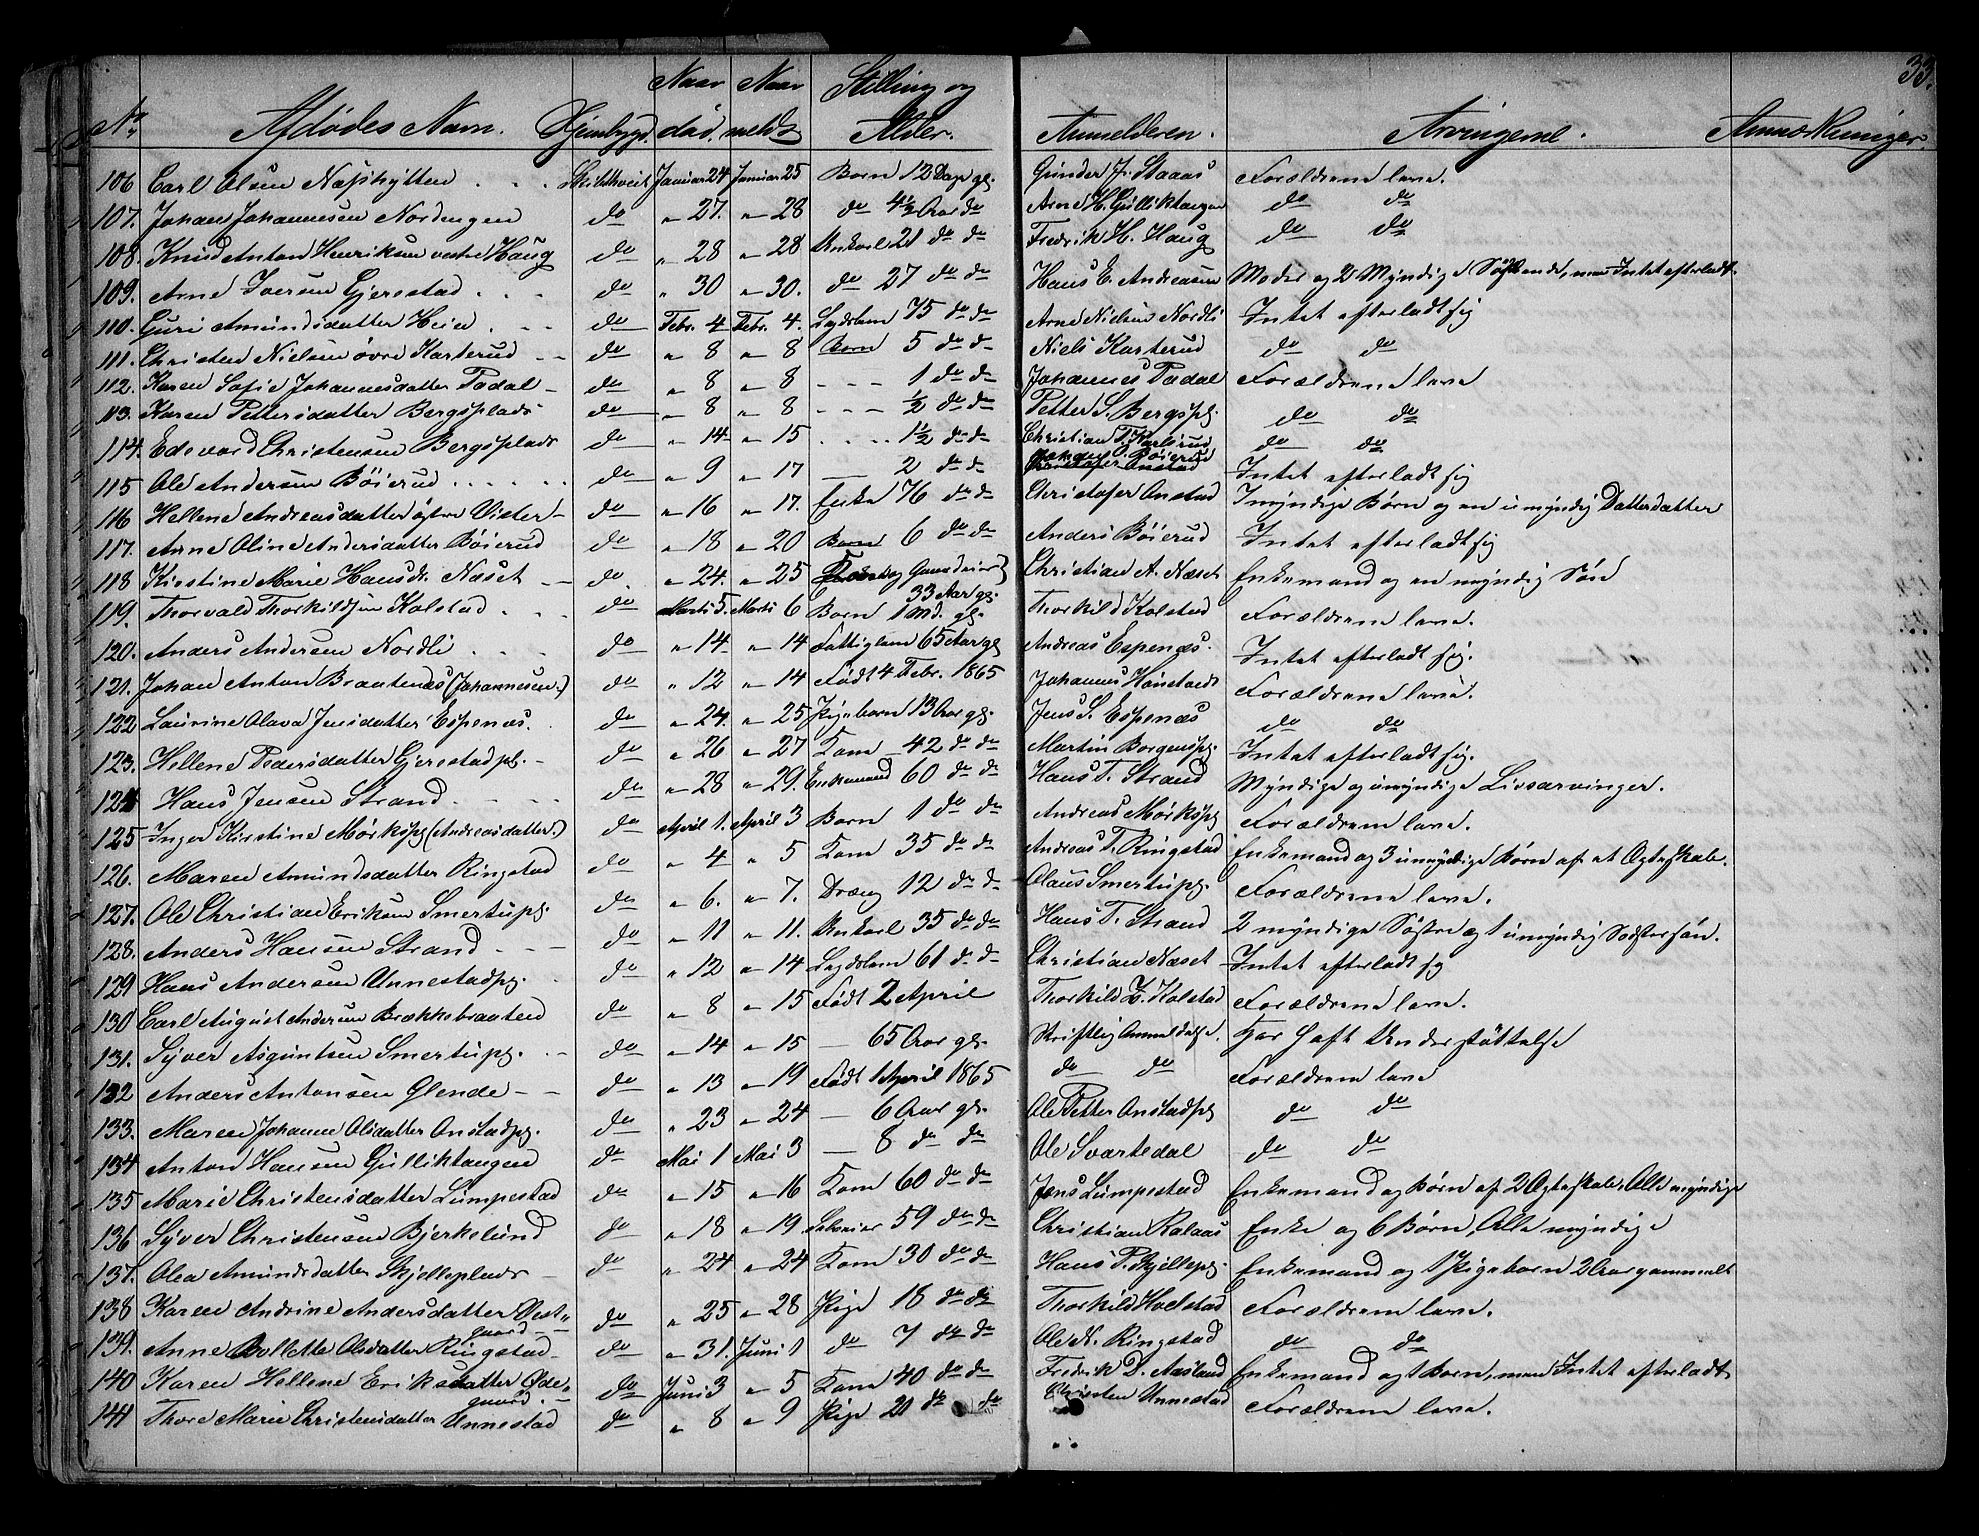 33.
No. Afdødes Navn. Hjembygd. Naar død. Naar meldt Stilling og Alder. Anmelderen. Arvingerne. Anmærkninger
106 Carl Olsen Næshytten . . . Skibthveit Januar 24 Januar 25 Barn 12 Dage gl. Gunder J. Staaas Forældrene leve.
107. Johan Johannesen Nordengen do " 27. " 28 do 4½ Aar do Arne H. Gulliktangen do do
108. Knud Anton Henriksen vestre Haug do " 28 " 28 Unkarl 21 do do Fredrik H. Haug do do
109. Arne Iversen Gjerestad . . . do " 30 " 30. do 27 do do Hans E. Andreasen Moder og 2 Myndige Søskende, men Intet efterladt.
110. Guri Amundsdatter Heier . . . do Febr. 4 Febr. 4. Lægdslem 75 do do Arne Nielsen Nordli Intet efterladt sig
111. Christen Nielsen øvre Karterud - - do " 8 " 8 Barn 5 do do Niels Karterud do do
112. Karen Sofie Johannesdatter Padal - do " 8 " 8 - - - 1 do do Johannes Padal Forældrene leve
113. Karen Pettersdatter Bergsplads do " 8 " 8 - - - ½ do do Petter S. Bergspl. do do
114. Edevard Christensen Bergsplads do " 14 " 15 . . . . 1½ do do Christian T. Karlsrud do do
115 Ole Andersen Böierud . . . . . . do " 9 " 17 — 2 do do Böierud Intet efterladt sig
116 Hellene Andreasdatter østre Vister - do " 16 " 17. Enke 76 do do Christofer Onstad Myndige Børn og en umyndig Datterdatter
117. Anne Oline Andersdatter Böierud do " 18 " 20 Barn 6 do do Anders Böierud Intet efterladt sig
118 Kirstine Marie Hansdr. Næset - - do. " 24. " 25 33 Aar gl. Christian A. Næset Enkemand og en myndig Søn
119. Thorvald Thorkildsen Kolstad . . do Marts 5. Marts 6 Barn 1 Md. gl. Thorkild Kolstad Forældrene leve.
120. Anders Andersen Nordli . . . do " 14 " 14 Fattiglem 65 Aar gl Andreas Espenæs. Intet efterladt sig.
121. Johan Anton Braatenæs (Johannesen.) do " 12 " 14 Født 4 Febr. 1865 Johannes Hönstaeds Forældrene leve.
122 Laurine Olava Jensdatter Espenæs. do " 24. " 25 Pigebarn 13 Aar gl. Jens S. Espenæs do do
123. Hellene Pedersdatter Gjerestadpl. - do " 26 " 27 Kone 42 do do Martin Borgenspl. Intet efterladt sig.
124 Hans Jensen Strand . - - - do " 28 " 29. Enkemand 60 do do Hans T. Strand Myndige og umyndige Livsarvinger.
125 Inger Kirstine Mörkspl (Andreasdatter.) do April 1. April 3 Barn 1 do do Andreas Mörkspl Forældrene leve.
126. Maren Amundsdatter Ringstad do " 4 " 5 Kone 35 do do Andreas T. Ringstad Enkemand og 3 umyndige Børn af et Ægteskab.
127. Ole Christian Eriksen Smertupl. do " 6. " 7. Dreng 12 do do Olaus Smertupl. Forældrene leve.
128. Anders Hansen Strand . - - do " 11 " 11. Unkarl 35 do do Hans T. Strand 2 myndige Søstre og 1 umyndig Søstersøn.
129 Hans Andersen Unnestadpl. . do " 12 " 14 Lægdslem 61 do do Christian Næset Intet efterladt sig
130 Carl August Andersen Brækkebraaten do " 8 " 15 Født 2 April Thorkild T. Kolstad Forældrene leve.
131. Syver Asguntsen Smertupl. . - do " 14 " 15 — 65 Aar gl. Skriftlig Anmeldelse. Har haft Understøttelse
132 Anders Antonsen Glende - - do " 13 " 19 Født 1 April 1865 do do Forældrene leve
133. Maren Johanne Olsdatter Onstadpl. do " 23 " 24 — 6 Aar gl. Ole Petter Onstadpl do do
134 Anton Hansen Gulliktangen do Mai 1 Mai 3 — 8 do do Ole Svartedal do do
135 Marie Christensdatter Lumpestad do " 15 " 16 Kone 60 do do Jens Lumpestad Enkemand og Børn af 2 Ægteskab, Alle myndige
136 Syver Christensen Bjerkelund do " 18 " 19 Selveier 59 do do Christian Kalaas Enke og 6 Børn, Alle myndige
137. Olea Amundsdatter Skjelleplads - do " 24 " 24 Kone 30 do do Hans P. Skjellepl. Enkemand og 1 Pigebarn 2 Aar gammelt
138 Karen Andrine Andersdatter Vest-gaard - do " 25 " 28 Pige 18 do do Thorkild Holstad Forældrene leve.
139. Anne Bollette Olsdatter Ringstad - do " 31. Juni 1 do 7 do do Ole N. Ringstad do do
140 Karen Hellene Eriksdatter Øde-gaard. - do Juni 3 " 5 Kone 40 do do Fredrik D. Aasland Enkemand og 1 Barn, men Intet efterladt
141 Thore Marie Christensdatter Unnestad do " 8 " 9 Pige 21 do do Christen Unnestad Forældrene leve.